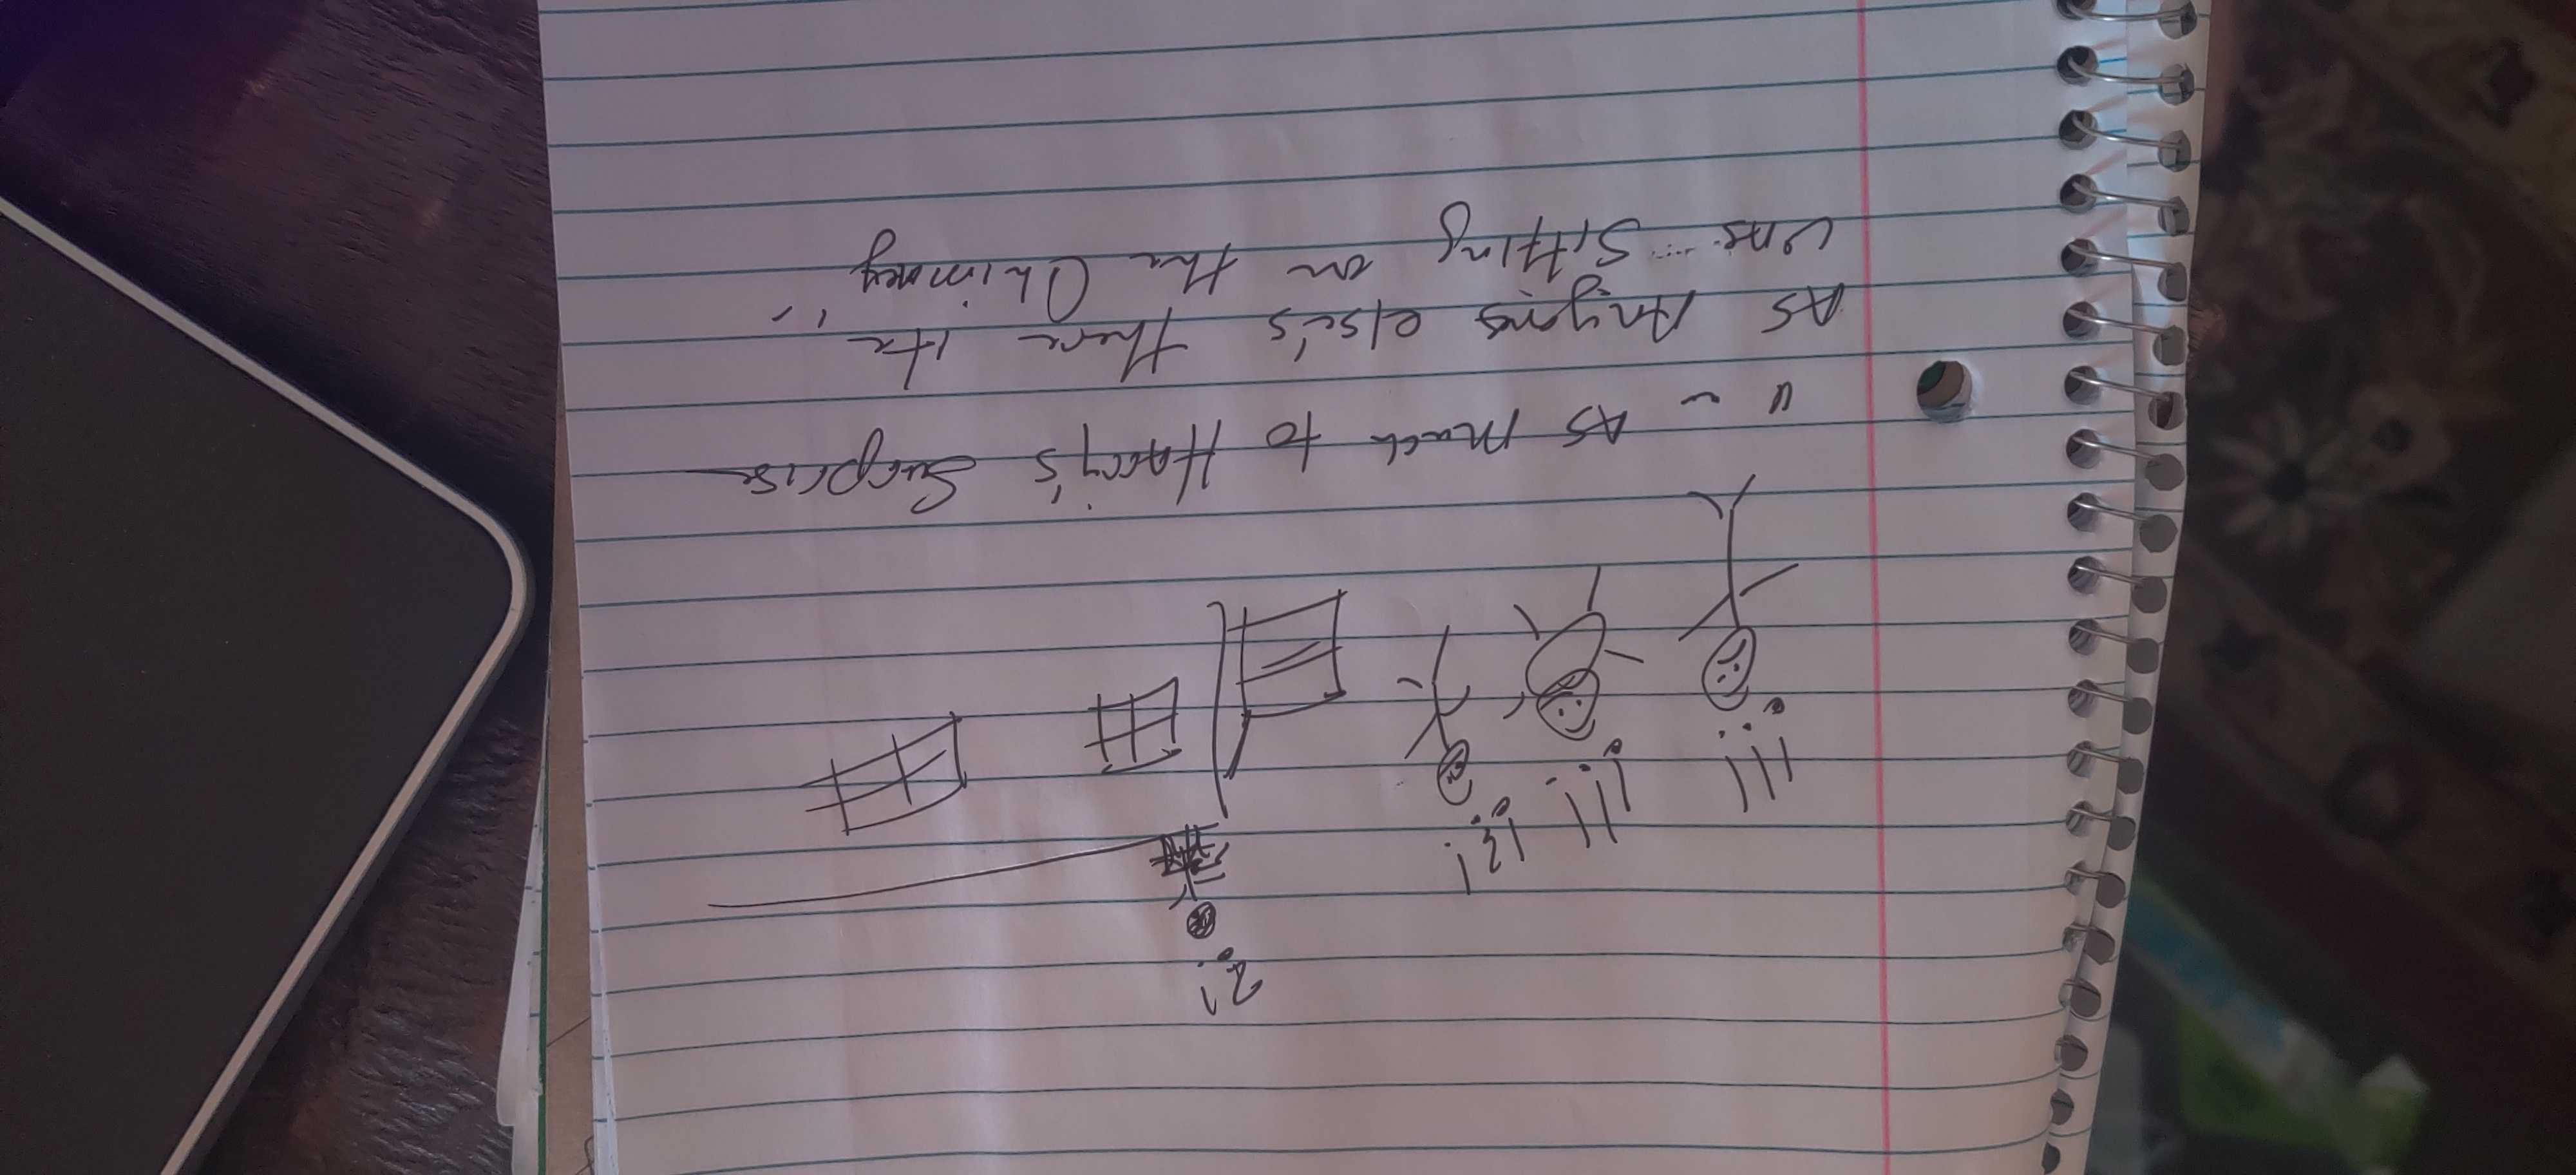 ?!
!!! !!! !?!
" - AS Much to Harry's Surprise
AS Anyone else's there He
WAS ... Sitting on the Chimney"